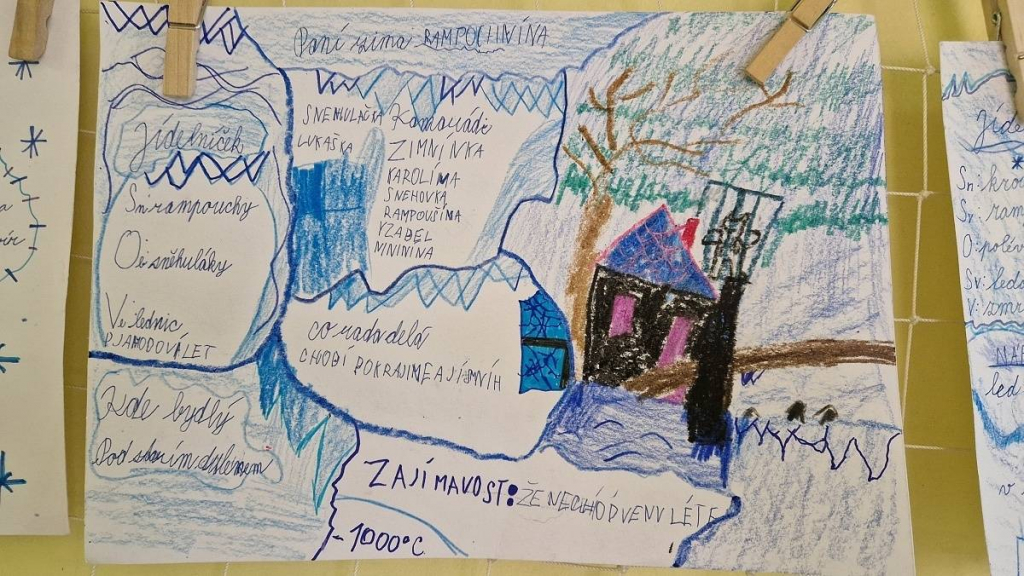 Paní zima RAMPOUCHNÍNÍNA
Jídelníček
Sn: rampouchy
O: sněhuláky
Ve: lednic
SNEHULAČKA
LUKAŠKA
Kamarádi
ZIMNINKA
KAROLÍMA
SNEHOVKA
RAMPOUŠIMA
YZABEL
NINININA
co ráda dělá
CHODI PO KRAJINE A JÍ SNÍH
Zde bydlý
Pod starím dubem
ZAJÍMAVOST: ŽE NECHÓDVENV LÉTE
-1000°C
Jíde
Sn:
Sv: ram
O: polév
Sv: ledo
V: zmr
led
v